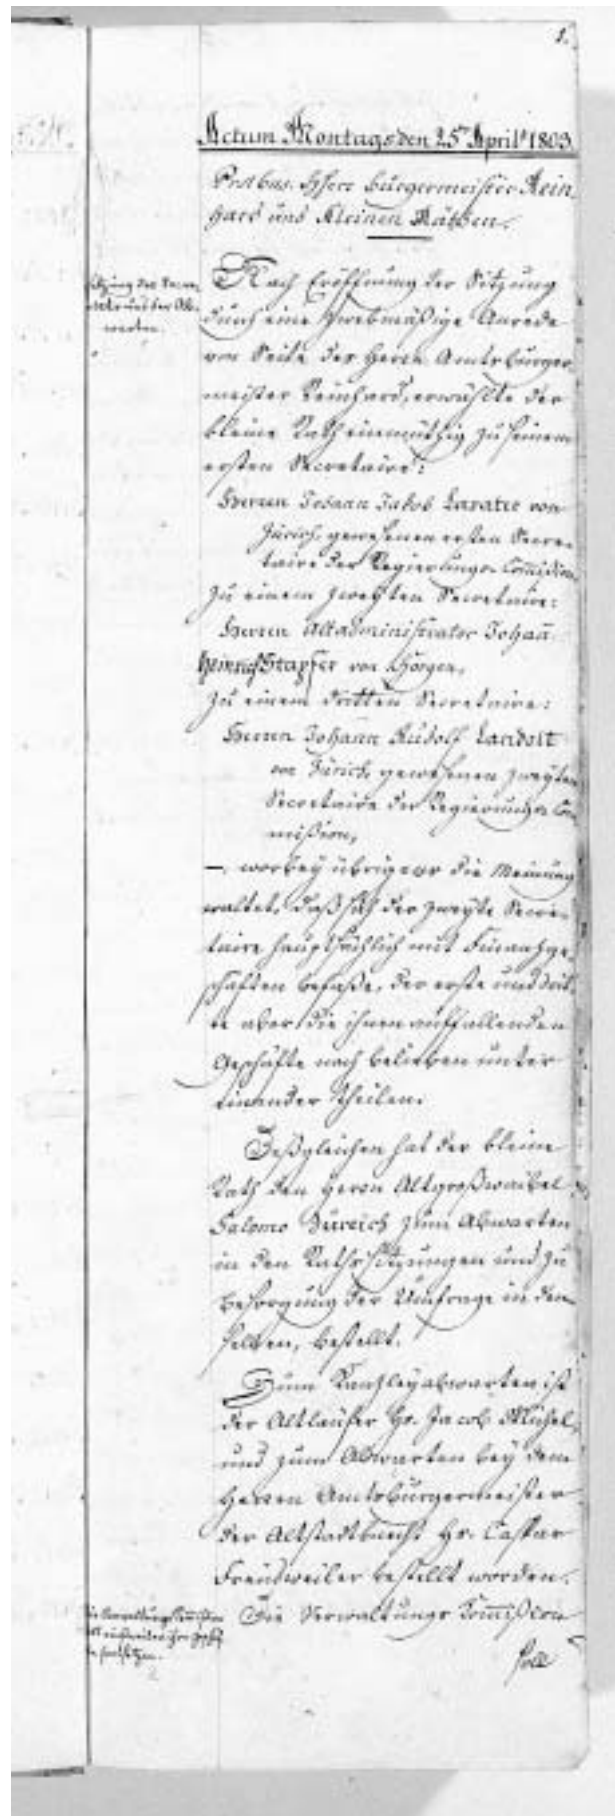 1.
Actum Montags den 25. April 1803.
Prstbus. Hherr Burgermeister Rein
hard und Kleinen Räthen.
Nach Eröffnung der Sitzung
durch eine zwekmäßige Anrede
von Seite des Herrn Amtsburger
meister Reinhard, erwählte der
kleine Rath einmüthig zu seinem
ersten Secretaire:
Herren Johann Jakob Lavater von
Zürich, gewesenen ersten Secre-
taire der Regierungs Commission
zu einem zweyten Secretaire:
Herren Altadministrator Johann
Heinrich Stapfer von Horgen,
zu einem dritten Secretaire:
Herren Johann Rudolf Landolt
von Zürich, gewesenen zweyten
Secretaire der Regierungs Com
mißion,
– worbey übrigens die Meinung
waltet, daß sich der zweyte Secre-
taire hauptsächlich mit Finanzge-
schäften befaße, der erste und drit-
te aber die ihnen auffallenden
Geschäfte nach belieben unter
einander theilen.
Deßgleichen hat der kleine
Rath den Herrn Altgroßwaibel
Salomo Dürrich zum Abwarten
in den Rathssitzungen und zu
Besorgung der Umfrage in den
selben, bestellt.
Zum Kanzleyabwarten ist
der Altläufer Hr. Jacob Michel,
und zum Abwarten bey dem
Herren Amtsburgermeister
der Altstadtknecht Hr. Caspar
Freudweiler bestellt worden.
Die Verwaltungs Commißion
soll